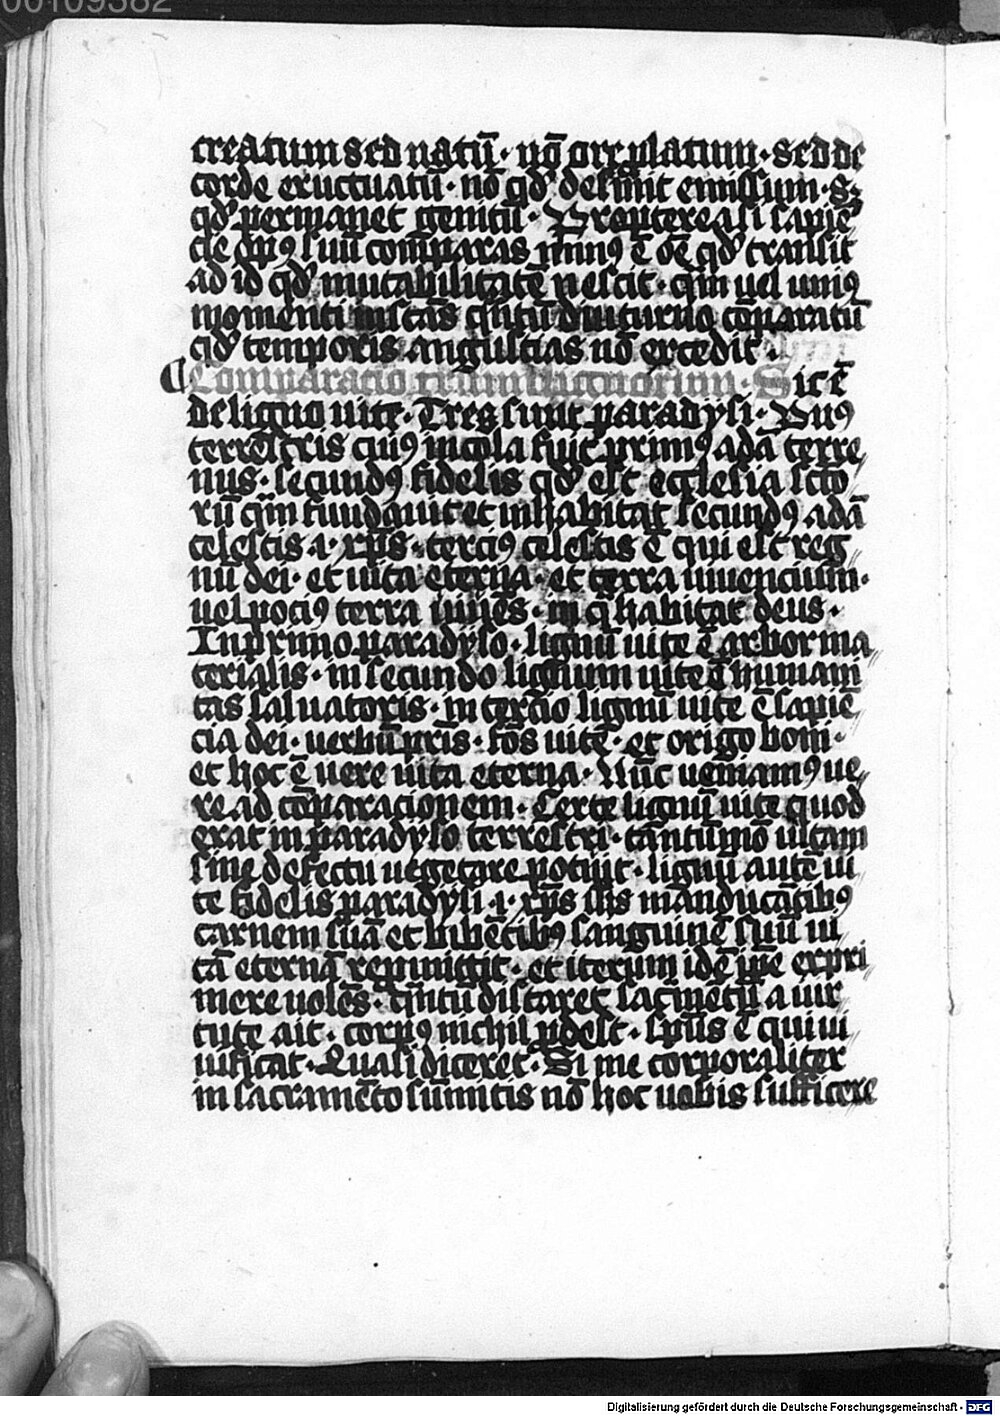 00109382
creatum sed natū · nō ore platum · sed de
corde eructuatū · nō qd' desinit emissum · s;
qd' permanet genitū · Propterea si sapiē
cie opꝰ suū comparas minꝰ ē oē qd' transit
ad id qd' mutabilitatē nescit · qm̄ uel uniꝰ
momenti instās q̄ntū diuturno cōparatū
qd' temporis angustias nō excedit ·
¶ Comparacio trium lignorum · Sic ē
de ligno uite · Tres sunt paradysi · Vnꝰ
terrestris cuiꝰ incola fuit primꝰ adā terre
nus · secundꝰ fidelis qd' est ecclesia scto
rū quā fundauit et inhabitat secundꝰ adā
celestis · i · xp̄s · terciꝰ celestis ē qui est reg
nū dei · et uita eterna · et terra uiuencium ·
uel pociꝰ terra uiuēs · in q̄ habitat deus ·
In primo paradyso · lignū uite ē arbor ma
terialis · in secundo lignum uite ē humani
tas saluatoris · in tercio lignū uite ē sapiē
cia dei · uerbū pr̄is · fōs uite · et origo boni ·
et hoc ē uere uita eterna · Nūc ueniamꝰ ue
re ad cōparacionem · Certe lignū uite quod
erat in paradyso terrestri · tantūmō uitam
sine defectu uegetare potuit · lignū autē ui
te fidelis paradysi · i · xp̄s ih̄s manducātibꝰ
carnem suā et bibētibꝰ sanguinē suū ui
tā eternā repmittit · et iterum idē ip̄e expri
mere uolēs · q̄ntū distaret sacm̄etū a uir
tute ait · corpꝰ nichil pdest · sp̄us ē qui ui
uificat · Quasi diceret · Si me corporaliter
in sacramēto sūmitis nō hoc uobis sufficere
Digitalisierung gefördert durch die Deutsche Forschungsgemeinschaft - DFG